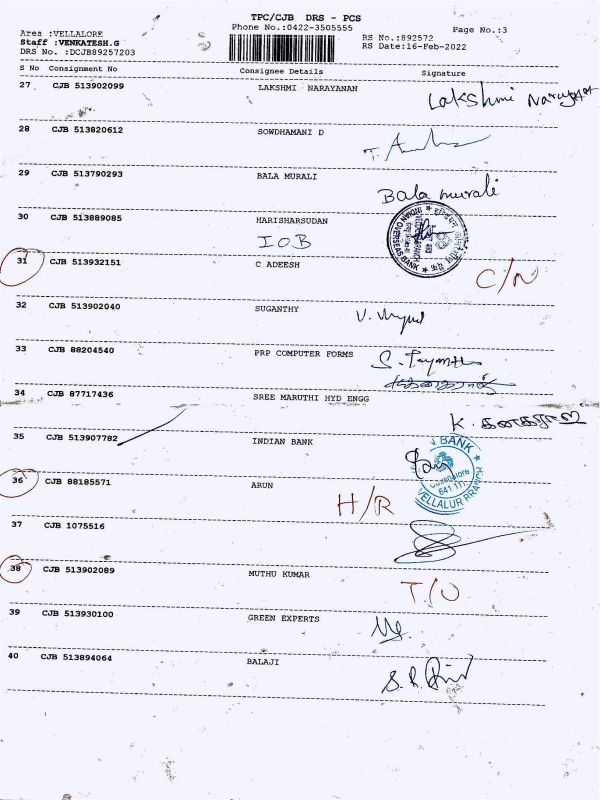 TPC/CJB DRS - PCS
Area :VELLALORE
Phone No.:0422-3505555
Page No.:3
Staff :VENKATESH.G
RS No.:892572
DRS No. :DCJB89257203
RS Date:16-Feb-2022
S No Consignment No Consignee Details Signature
27 CJB 513902099 LAKSHMI NARAYANAN Lakshmi
28 CJB 513820612 SOWDHAMANI D
29 CJB 513790293 BALA MURALI Bala murali
30 CJB 513889085 HARISHARSUDAN
IOB INDIAN OVERSEAS BANK
31 CJB 513932151 C ADEESH C/N
32 CJB 513902040 SUGANTHY
33 CJB 88204540 PRP COMPUTER FORMS
34 CJB 87717436 SREE MARUTHI HYD ENGG
K. கனகராஜ்
35 CJB 513907782 INDIAN BANK
BANK
641 111
VELLALUR BRANCH
36 CJB 88185571 ARUN H/R
37 CJB 1075516
38 CJB 513902089 MUTHU KUMAR T/O
39 CJB 513930100 GREEN EXPERTS
40 CJB 513894064 BALAJI